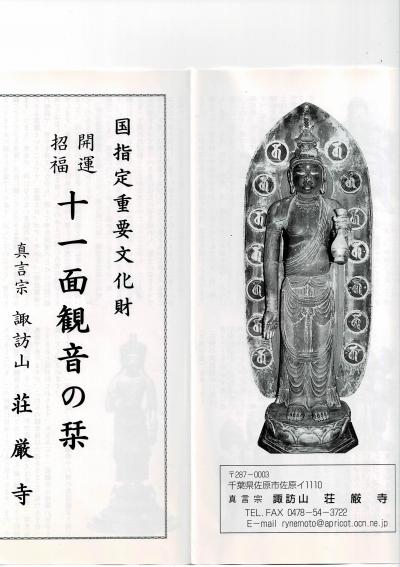 国指定重要文化財
開運
招福
十一面観音の栞
真言宗 諏訪山 荘厳寺
〒287-0003
千葉県佐原市佐原イ1110
真言宗 諏訪山 荘厳寺
TEL. FAX 0478-54-3722
E-mail rynemoto@apricot.ocn.ne.jp